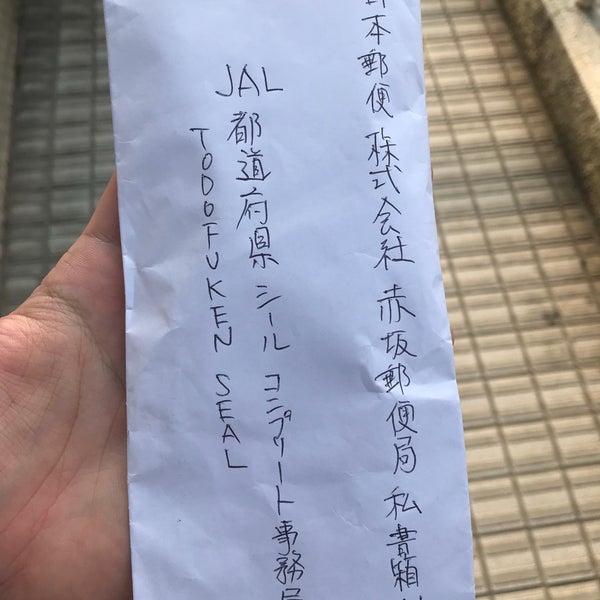 日本郵便 株式会社 赤坂郵便局 私書箱
JAL 都道府県 シール コンプリート 事務局
TODOFUKEN SEAL